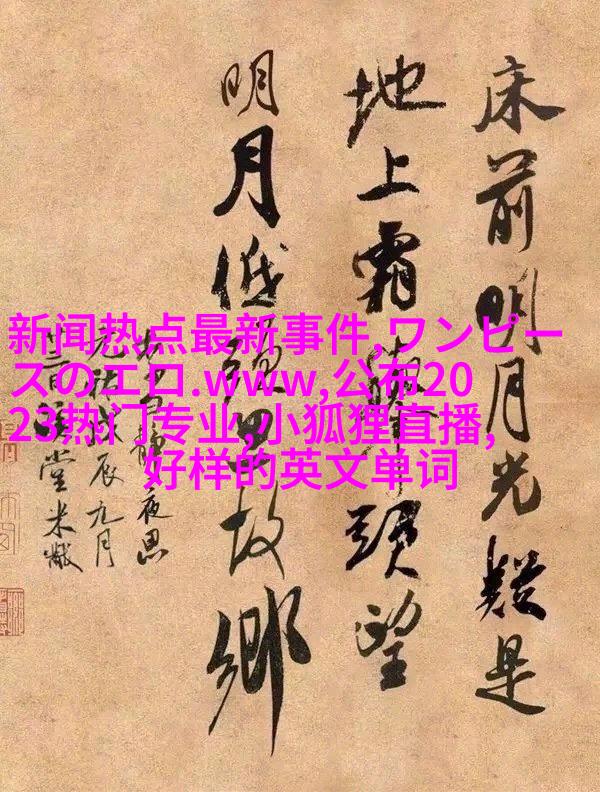 床前明月光疑是
地上霜舉頭望
明月低頭思故鄉
李白靜夜思
元祐戊辰九月
堂米黻
新闻热点最新事件,ワンピー
スのエロ.www,公布20
23热门专业,小狐狸直播,
好样的英文单词